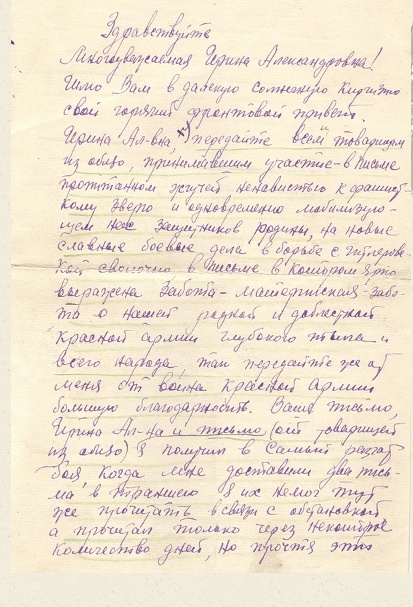 Здравствуйте
Многоуважаемая Ирина Александровна!
Шлю Вам в далекую солнечную Киргизию
свой горячий фронтовой привет.
Ирина Ал-вна, передайте всем товарищам
из облзо, принимавшим участие в письме
пропитанном жгучей ненавистью к фашист-
кому зверю и одновременно мобилизую-
щем нас защитников родины, на новые
славные боевые дела в борьбе с гитлеров-
кой сволочью, в письме в котором ярко
выражена забота - материнская забо-
та о нашей родной и доблестной
Красной армии глубокого тыла и
всего народа, так передайте же от
меня от воина Красной Армии
большую благодарность. Ваше письмо,
Ирина Ал-на и письмо (от товарищей
из облзо) я получил в самый разгар
боя, когда мне доставили два пись-
ма, в траншею я их немог тут
же прочитать в связи с обстановкой
а прочитал только через некоторое
количество дней, но прочтя эти